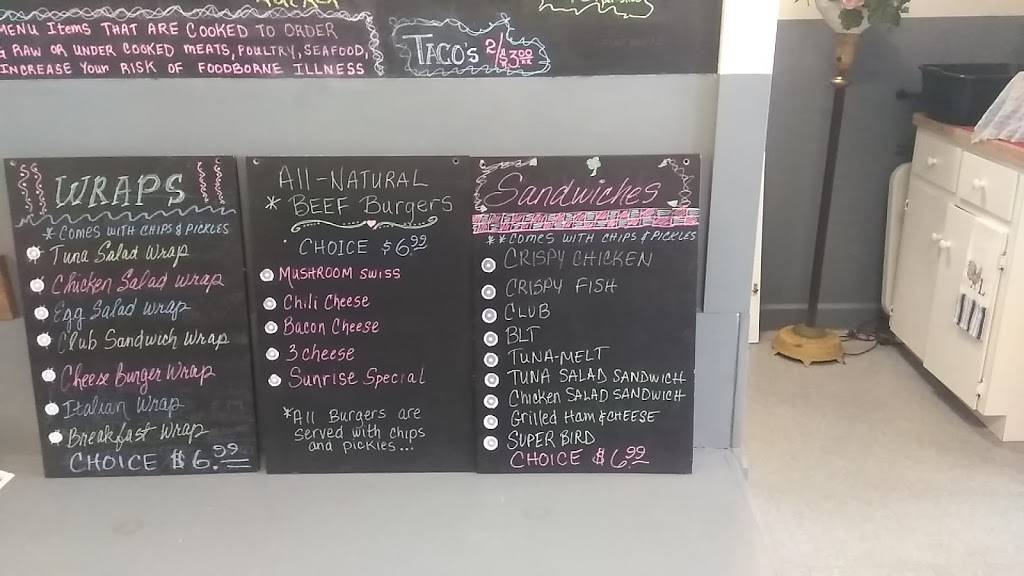 MENU ITEMS THAT ARE COOKED TO ORDER
RAW OR UNDER COOKED MEATS, POULTRY, SEAFOOD,
INCREASE YOUR RISK OF FOODBORNE ILLNESS
TACO'S 2/$3.00
WRAPS
*COMES WITH CHIPS & PICKLES
Tuna Salad Wrap
Chicken Salad Wrap
Egg Salad Wrap
Club Sandwich Wrap
Cheese Burger Wrap
Italian Wrap
Breakfast Wrap
CHOICE $6.99
All-NATURAL
* BEEF Burgers
CHOICE $6.99
MUSHROOM SWISS
Chili Cheese
Bacon Cheese
3 cheese
Sunrise Special
*All Burgers are
served with chips
and pickles...
Sandwiches
**COMES WITH CHIPS & PICKLES
CRISPY CHICKEN
CRISPY FISH
CLUB
BLT
TUNA-MELT
TUNA SALAD SANDWICH
Chicken SALAD SANDWICH
Grilled Ham & CHEESE
SUPER BIRD
CHOICE $6.99